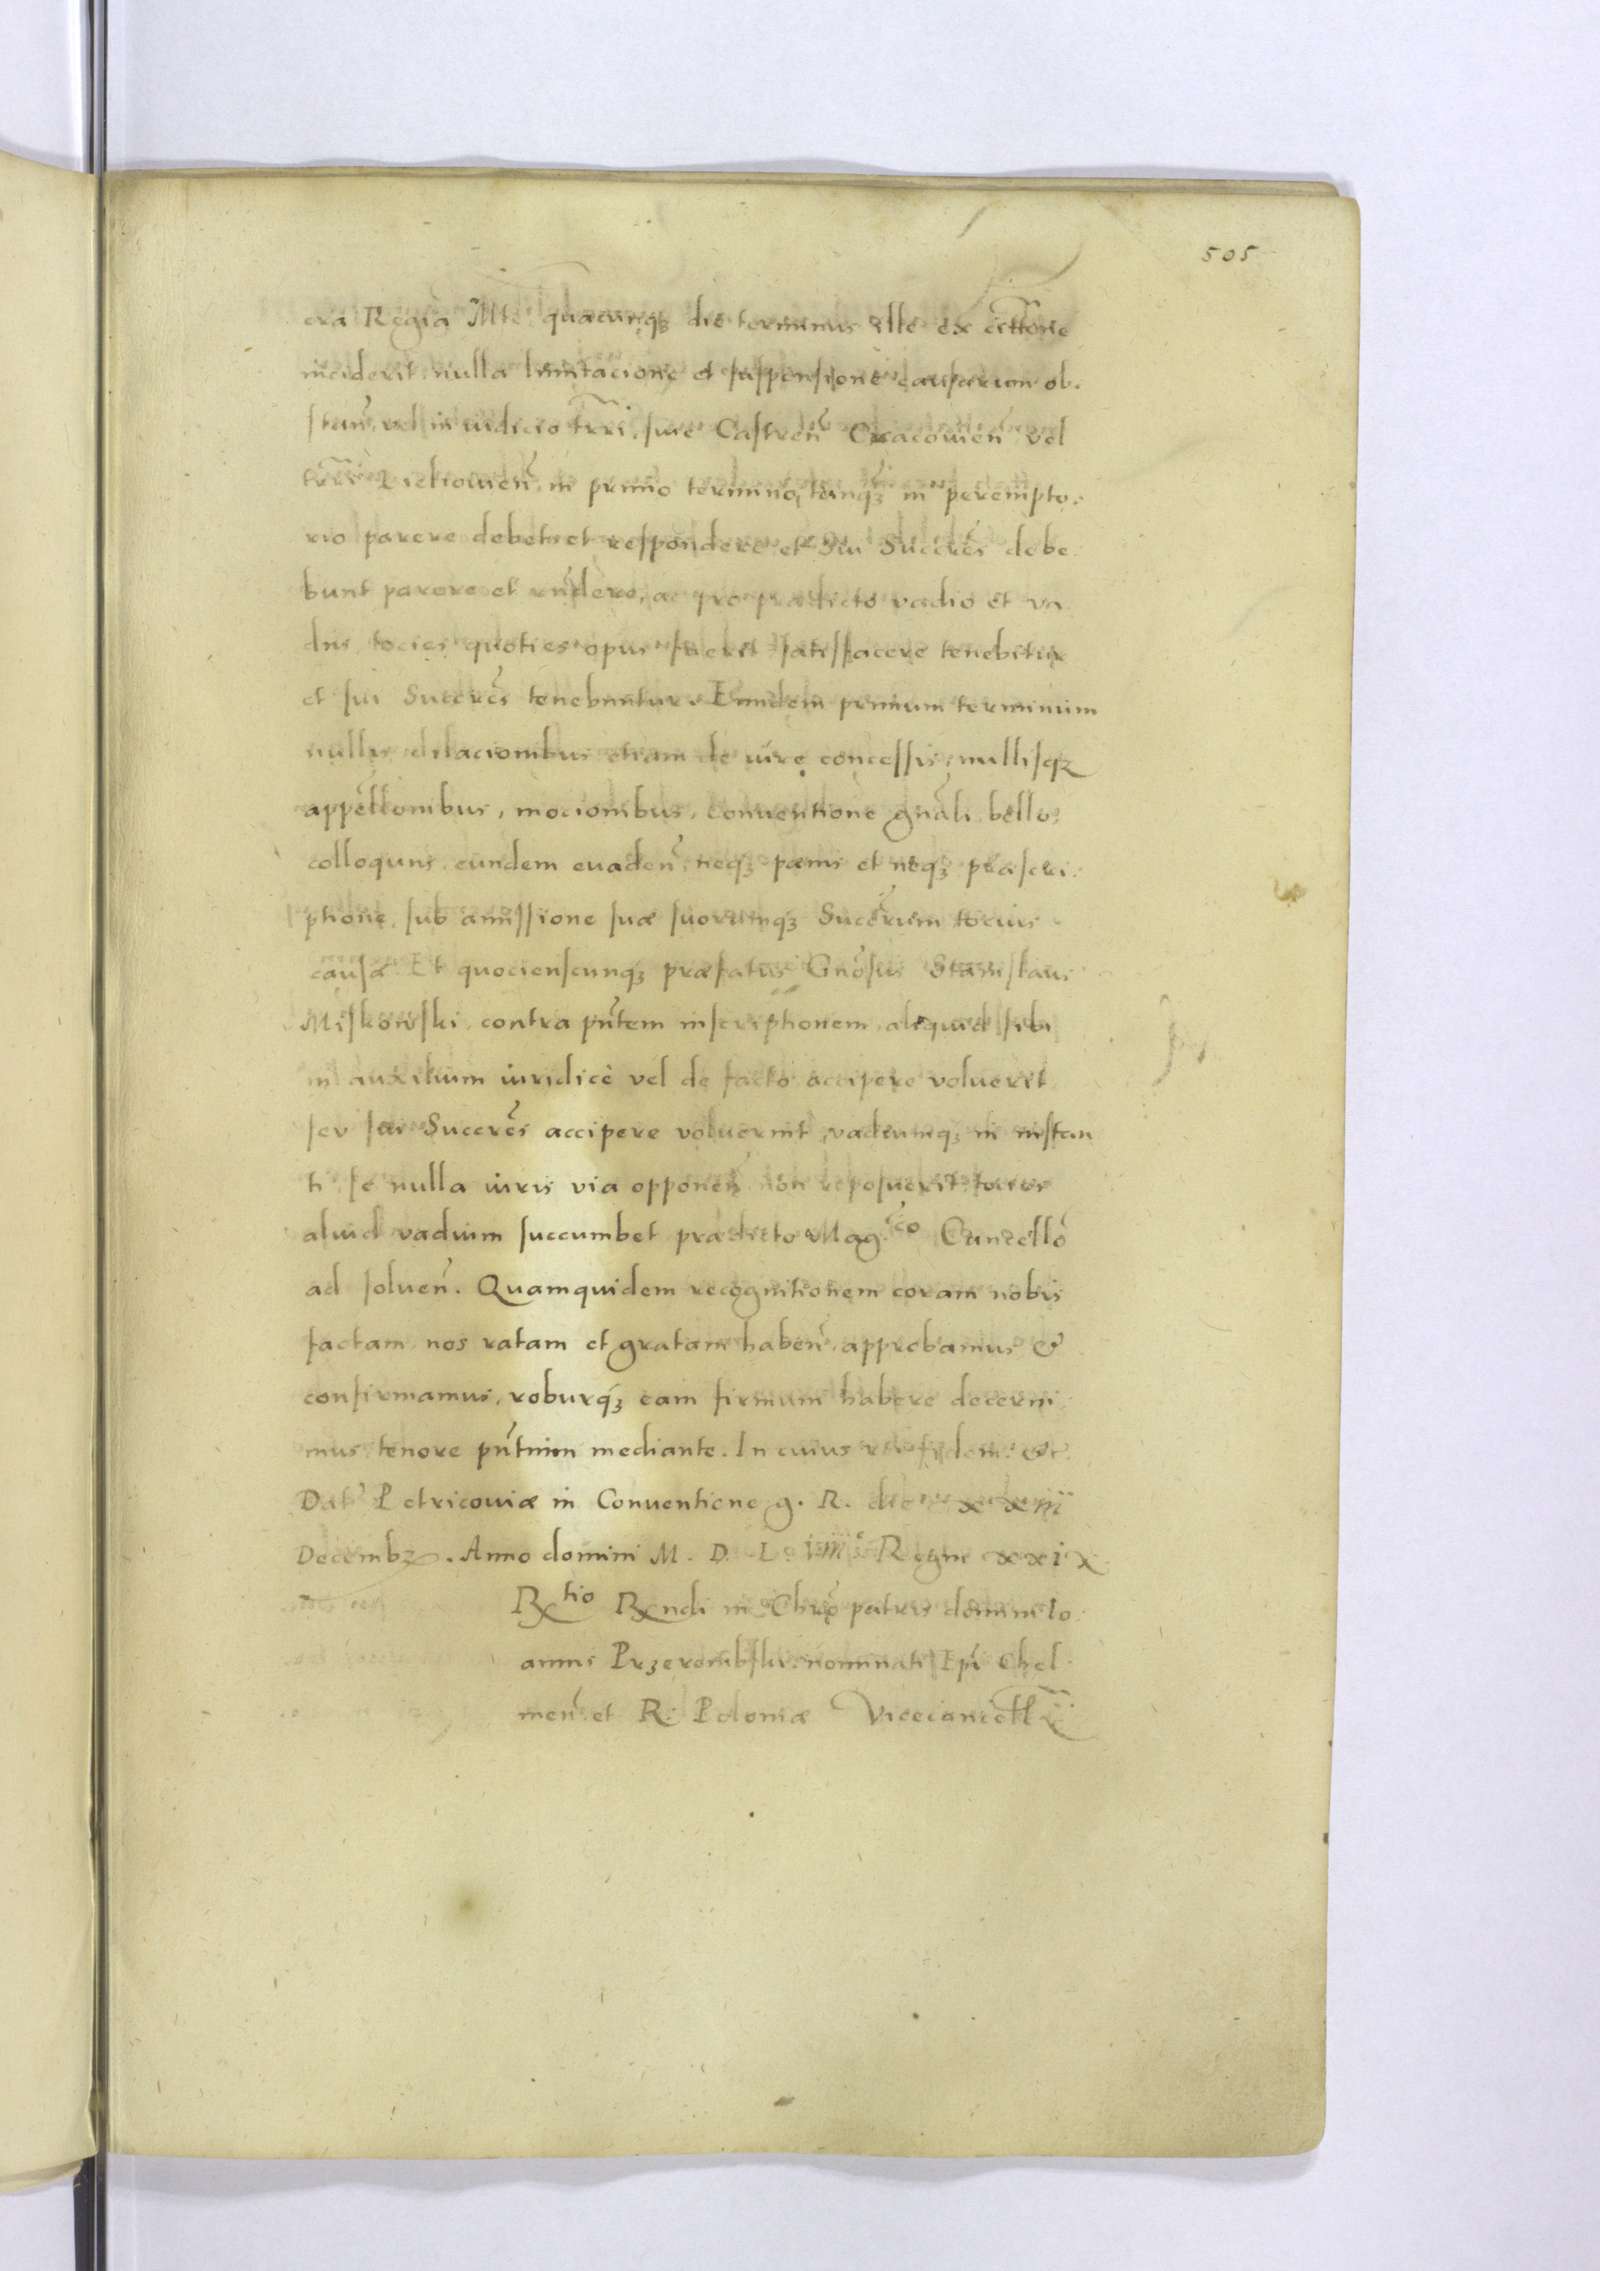 505
cra Regia Mte quacunqʒ die terminus ille ex cittone
inciderit nulla limitacione et suspensione causarum ob.
stan̄ vel in iudicio trri. sive Castren̄ Cracovien̄ vel
trri in primo termino tanqʒ in perempto.
rio parere debet et respondere et sui Succrēs debe
bunt parere et rn̄dere, ac pro prædicto vadio et va
diis tocies quoties opus fuerit satisfacere tenebitur
et sui Succrēs tenebuntur. Eundem primum terminum
nullis dilacionibus etiam de iure concessis, nullisqʒ
appēllonibus, mocionibus, conventione gn̄ali bello,
colloquiis eundem evaden̄, neqʒ pœnis et neqʒ præscri.
ptione, sub amissione suæ suorumqʒ Succrum tocius
causæ. Et quocienscunqʒ præfatus Gnōsus Stanislaus
Miskowski contra pn̄tem inscriptionem aliquid sibi
in auxilium iuridicè vel de facto accipere voluerit
seu sui Succrēs accipere voluerint, vadiumqʒ in instan
ti se nulla iuris via opponen̄ non reposuerit tocies
aliud vadium succumbet prædicto Mag.co Cancellō
ad solven̄. Quamquidem recognitionem coram nobis
factam nos ratam et gratam haben̄, approbamus &
confirmamus, roburqʒ eam firmum habere decerni
mus tenore pn̄tium mediante. In cuius rei fidem. &c.
Dat̄ Petricoviæ in Conventione g. R. die xxiii
Decembʒ. Anno domini M. D. L. Regni xxix
Rtio Rndi in Chrō patris domini Io
annis Przerombski nominati Epi Chel
men̄ et R. Poloniæ Vicecancell